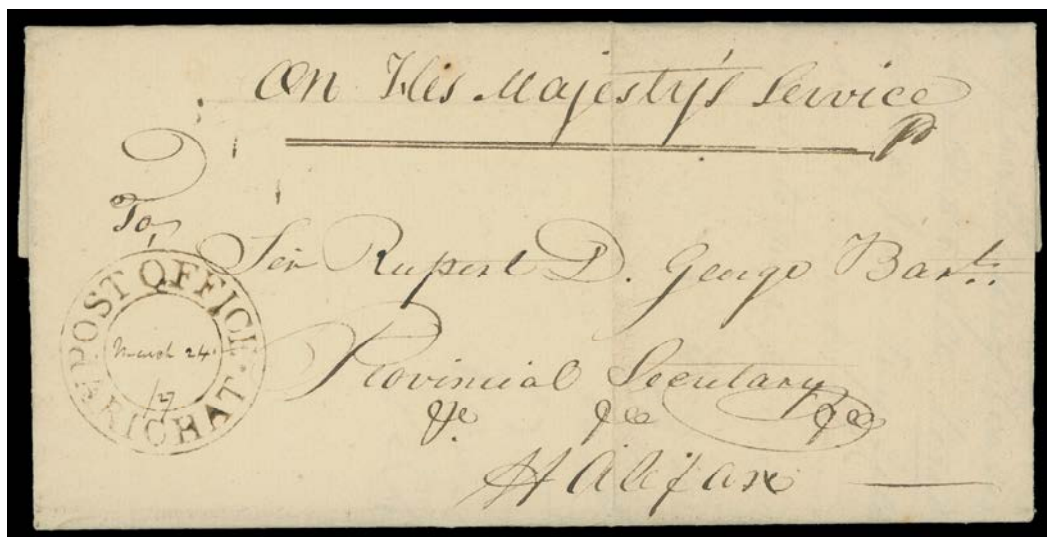 On His Majesty's Service
To,
Sir Rupert D. George Bart:
Provincial Secretary
&c &c &c
Halifax
POST OFFICE
March 24
ARICHAT.